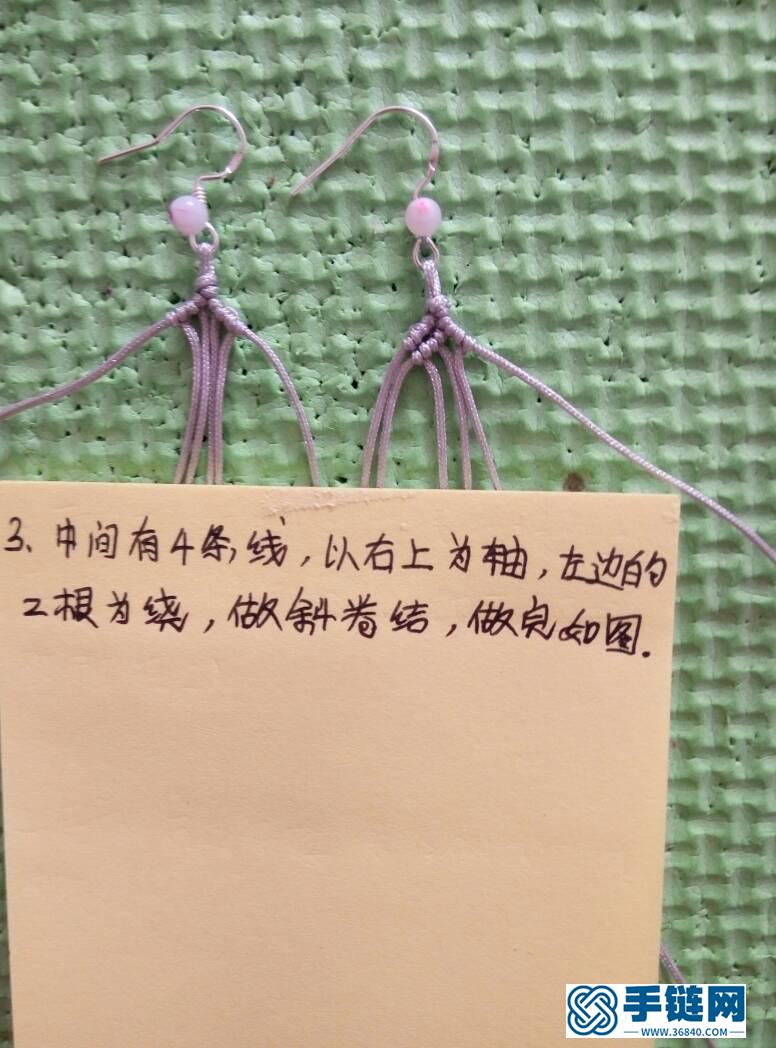 3、中间有4条线，以右上为轴，左边的
2根为绕，做斜卷结，做完如图.
手链网
WWW.36840.COM